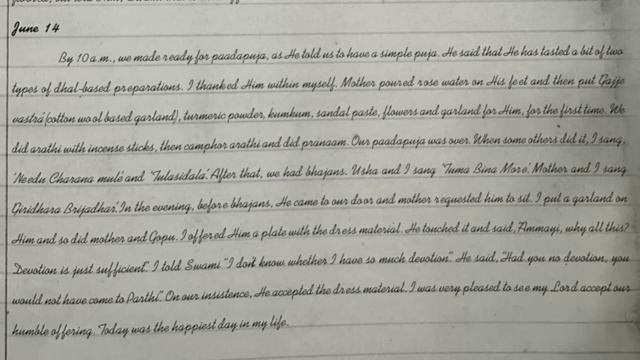 June 14
By 10 a.m., we made ready for paadapuja, as He told us to have a simple puja. He said that He has tasted a bit of two
types of dhal-based preparations. I thanked Him within myself. Mother poured rose water on His feet and then put Gajje
vastra (cotton wool based garland), turmeric powder, kumkum, sandal paste, flowers and garland for Him, for the first time. We
did arathi with incense sticks, then camphor arathi and did pranaam. Our paadapuja was over. When some others did it, I sang,
'Needu Charana mule' and 'Tulasidala'. After that, we had bhajans. Usha and I sang 'Tuma Bina More'. Mother and I sang
Giridhara Brijadhar'. In the evening, before bhajans, He came to our door and mother requested him to sit. I put a garland on
Him and so did mother and Gopu. I offered Him a plate with the dress material. He touched it and said, "Ammayi, why all this?
Devotion is just sufficient". I told Swami "I don't know whether I have so much devotion". He said, "Had you no devotion, you
would not have come to Parthi". On our insistence, He accepted the dress material. I was very pleased to see my Lord accept our
humble offering. Today was the happiest day in my life.